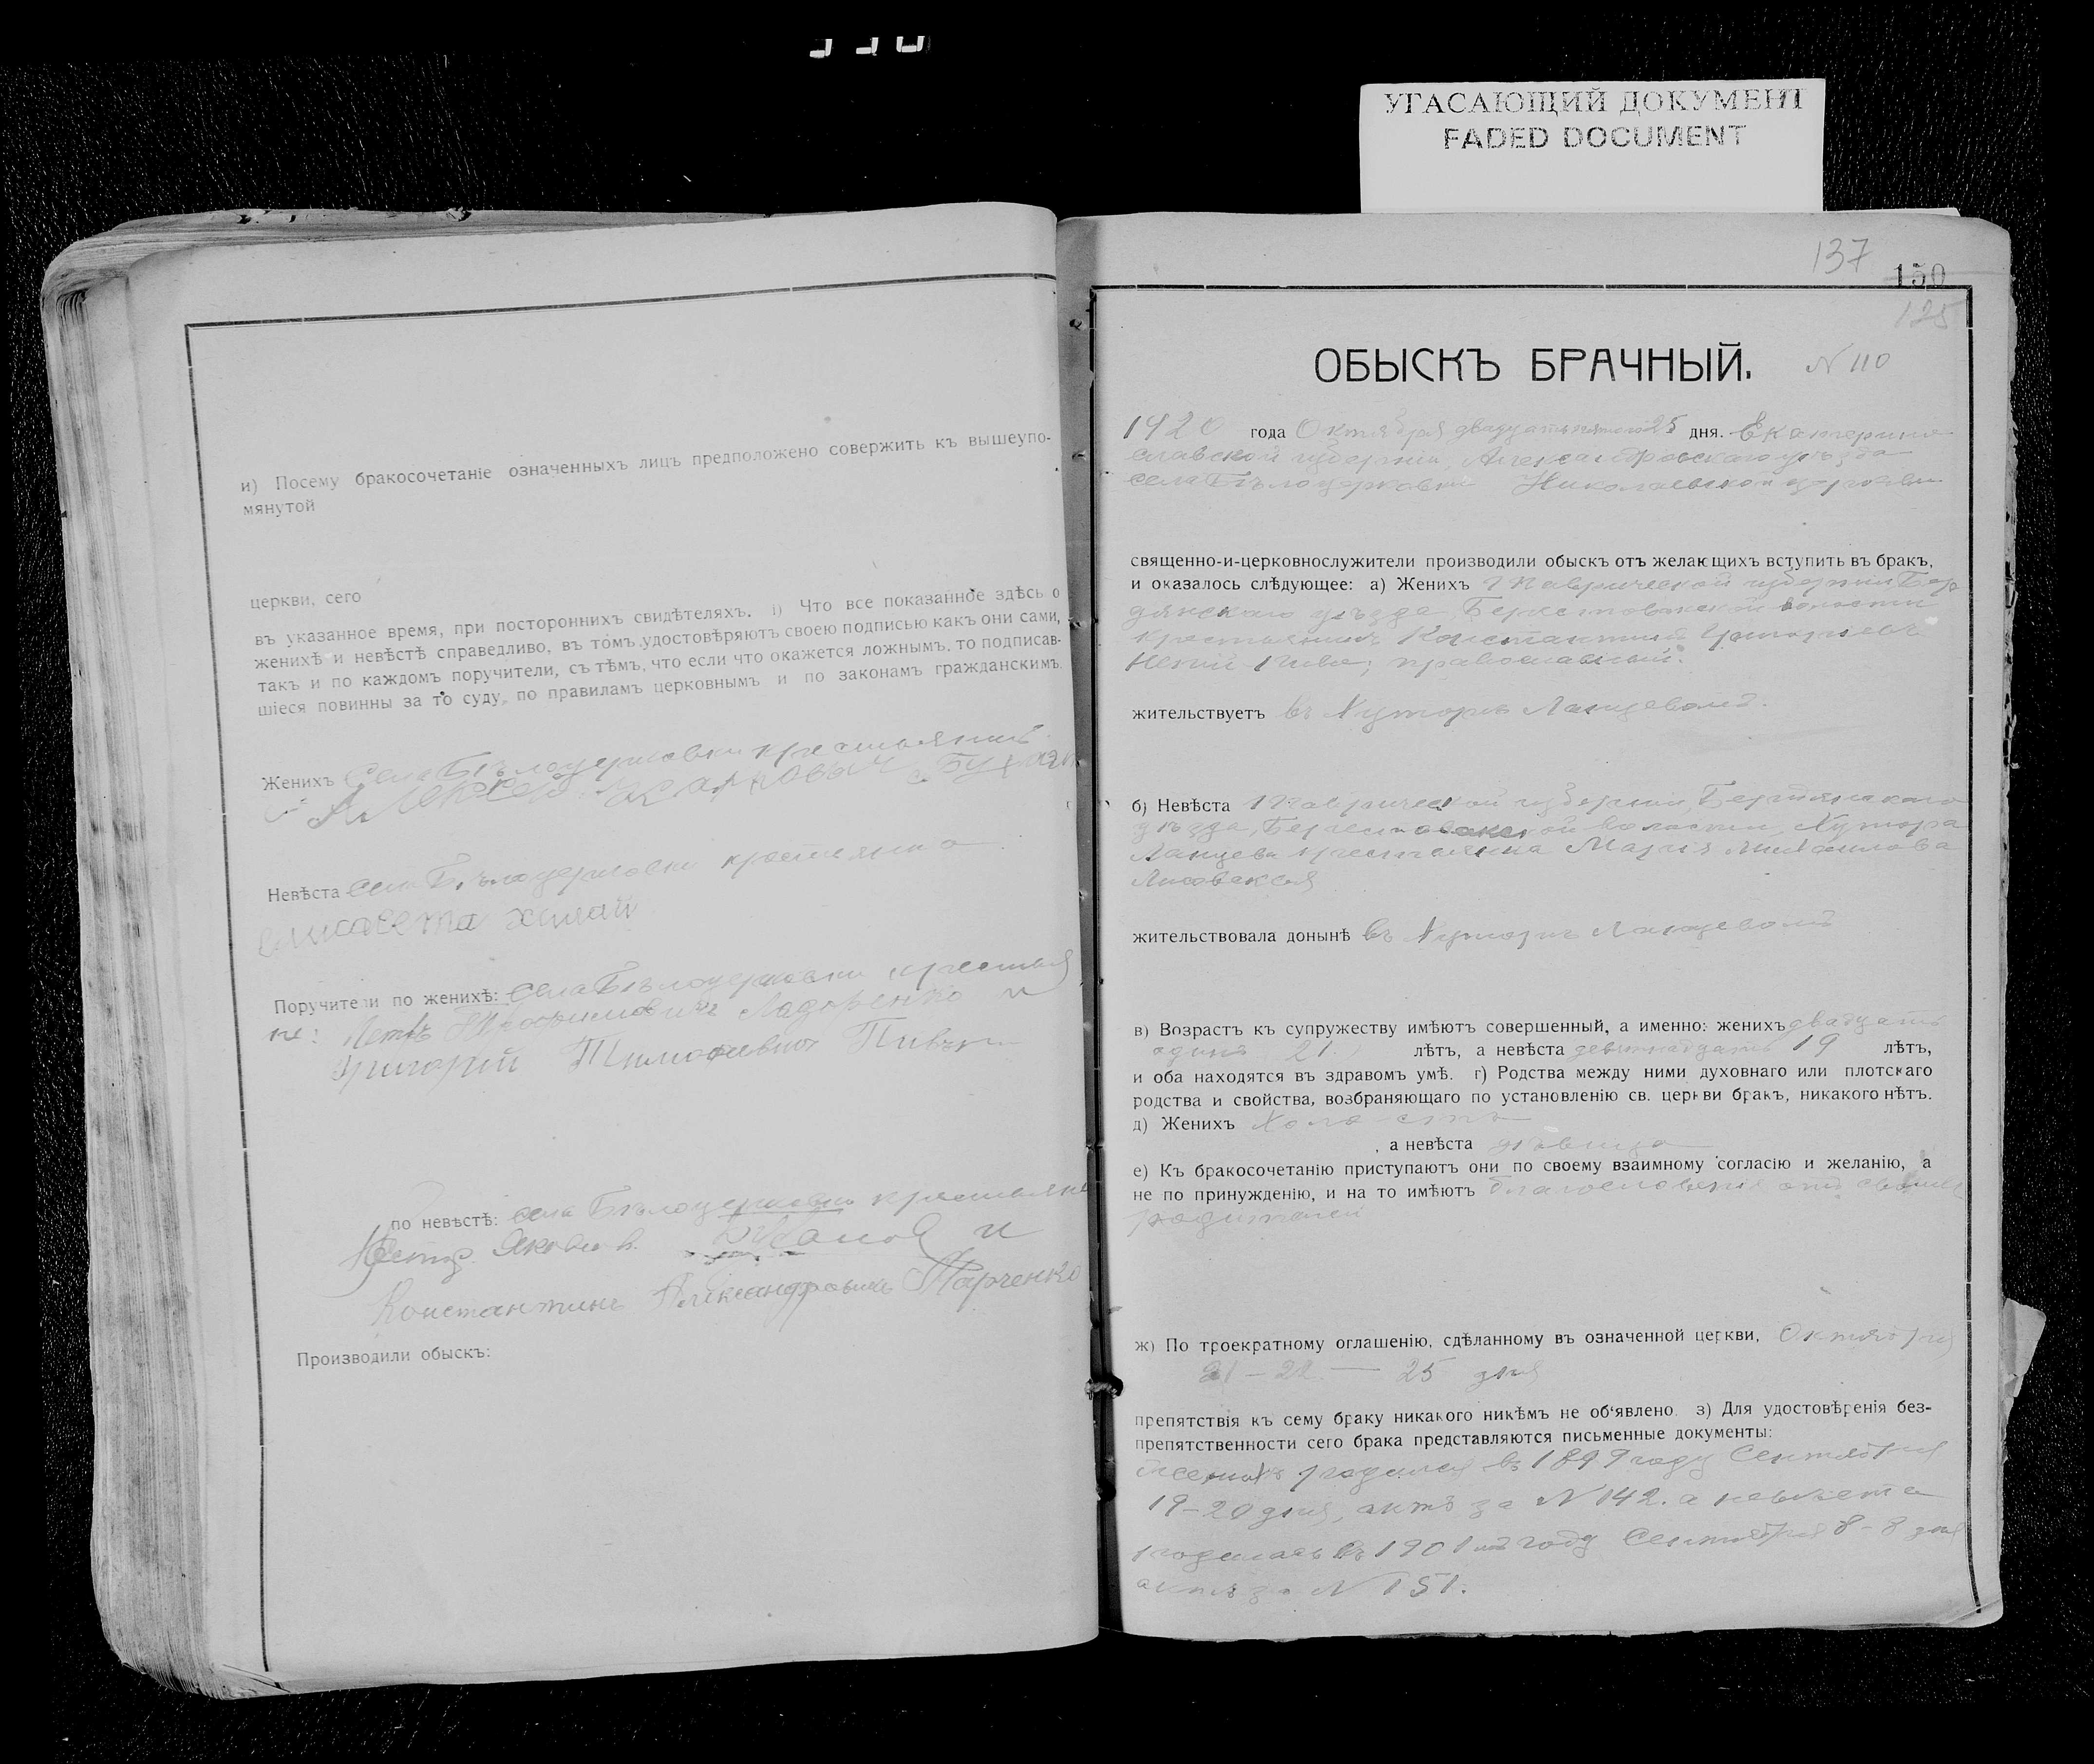 УГАСАЮЩИЙ ДОКУМЕНТ
FADED DOCUMENT
и) Посему бракосочетаніе означенныхъ лицъ предположено совержить къ вышеупо-
мянутой
церкви, сего
въ указанное время, при постороннихъ свидѣтеляхъ. і) Что все показанное здѣсь о
женихѣ и невѣстѣ справедливо, въ томъ удостовѣряютъ своею подписью какъ они сами,
такъ и по каждомъ поручители, съ тѣмъ, что если что окажется ложнымъ, то подписав-
шіеся повинны за то суду, по правиламъ церковнымъ и по законамъ гражданскимъ.
Женихъ села Бѣлоцерковки крестьянинъ
Невѣста села Бѣлоцерковки крестьянка
Поручители по женихѣ: села Бѣлоцерковки крестья
не: Петръ Ладовенко и
Григорій Тимофѣевичъ
по невѣстѣ: села Бѣлоцерковки крестьяне
Яковлев. и
Константинъ Александровичъ Марченко
Производили обыскъ:
137
150
125
ОБЫСКЪ БРАЧНЫЙ. N 110
1920 года Октября двадцать пятого 25 дня. Екатерино
славской губерніи, Александровскаго уѣзда
села Бѣлоцерковки Николаевской церкви
священно-и-церковнослужители производили обыскъ отъ желающихъ вступить въ бракъ,
и оказалось слѣдующее: а) Женихъ Таврической губерніи Бер
дянскаго уѣзда, Берестовской волости
крестьянинъ Константинъ Григорьевъ
православный.
жительствуетъ въ Хуторѣ Ланцевомъ.
б) Невѣста Таврической губерніи, Бердянскаго
уѣзда, Берестовской волости, Хутора
Ланцева крестьянка Марія Михайлова
Лисовская
жительствовала донынѣ въ Хуторѣ Ланцевомъ
в) Возрастъ къ супружеству имѣютъ совершенный, а именно: женихъ двадцать
одинъ 21. лѣтъ, а невѣста девятнадцать 19 лѣтъ,
и оба находятся въ здравомъ умѣ. г) Родства между ними духовнаго или плотскаго
родства и свойства, возбраняющаго по установленію св. церкви бракъ, никакого нѣтъ.
д) Женихъ Холостъ
, а невѣста дѣвица
е) Къ бракосочетанію приступаютъ они по своему взаимному согласію и желанію, а
не по принужденію, и на то имѣютъ благословеніе отъ своихъ
родителей
ж) По троекратному оглашенію, сдѣланному въ означенной церкви, Октября
21 – 22 — 25 дня
препятствія къ сему браку никакого никѣмъ не об'явлено. з) Для удостовѣренія без-
препятственности сего брака представляются письменные документы:
женихъ родился въ 1899 году Сентября
19-20 дня, актъ за N 142. а невѣста
родилась въ 1901 году Сентября 8-8 дня
актъ за N 151.